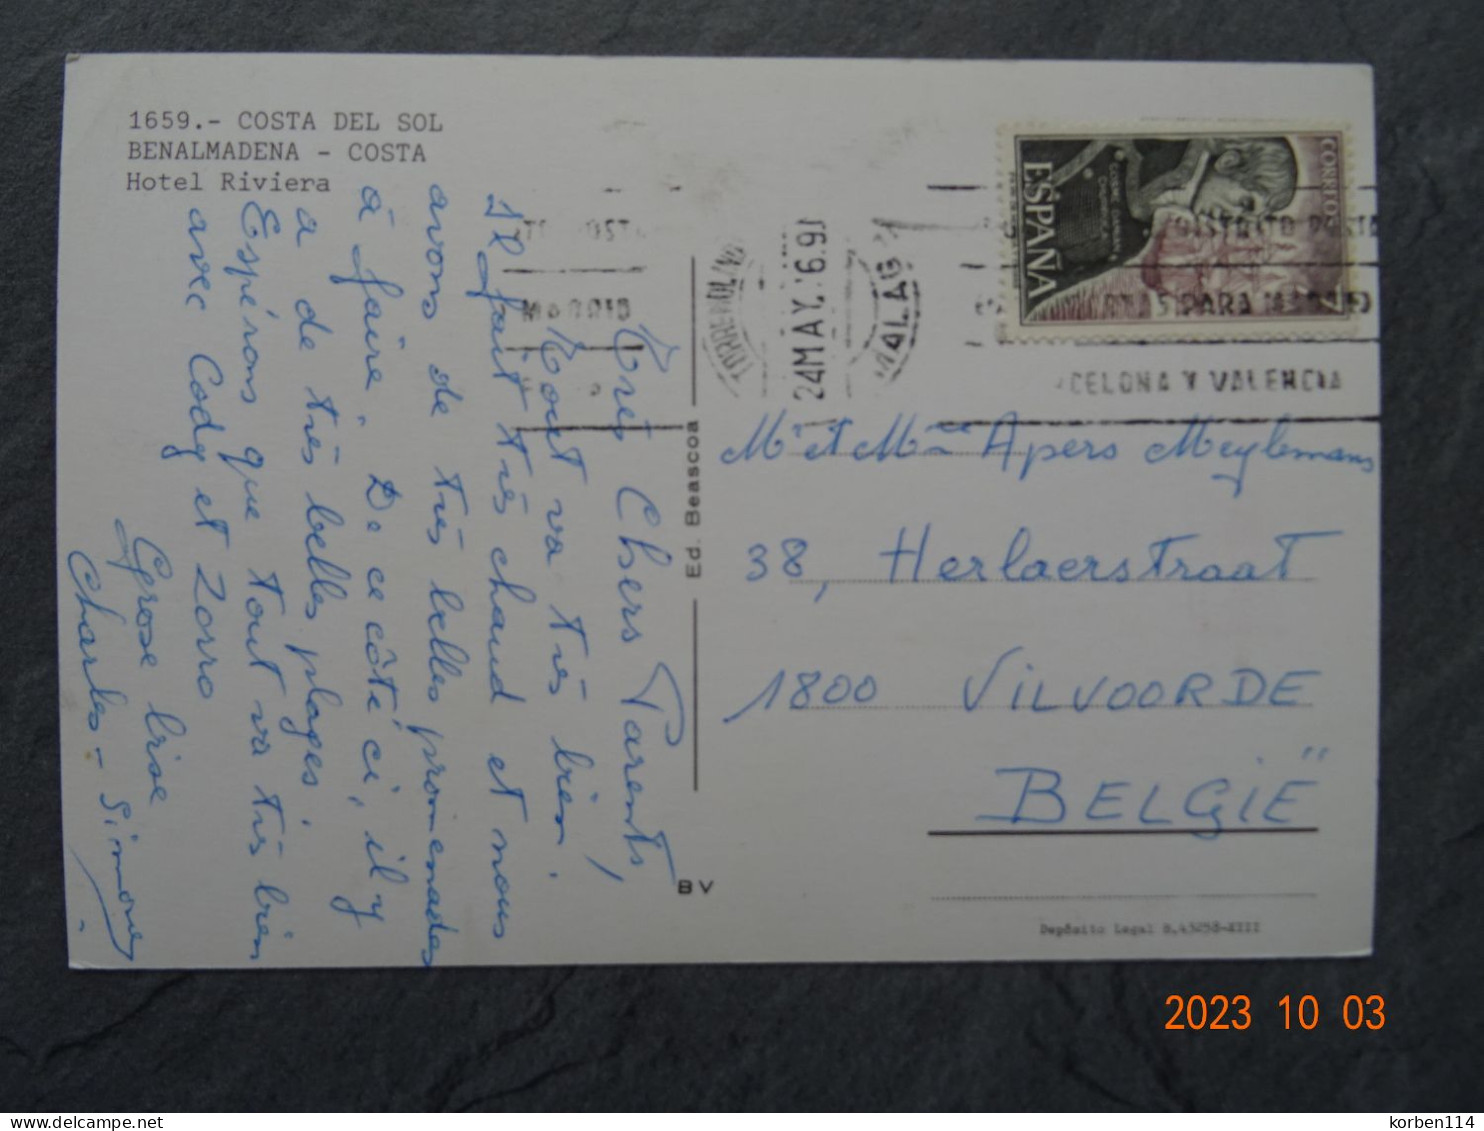 1659.- COSTA DEL SOL
BENALMADENA - COSTA
Hotel Riviera
Très Chers Parents,
Tout va très bien.
Il fait très chaud et nous
avons de très belles promenades
à faire. De ce côté ci, il y
a de très belles plages.
Espérons que tout va très bien
avec Cody et Zorro
Grosse bise
Charles - Simone
Ed. Beascoa
BV
MADRID
TORREMOLINOS
24 MAY.
MALAGA
DISTRITO POSTAL
PARA
CELONA Y VALENCIA
ESPAÑA
CORREOS
Mr et Mme Apers Meylemans
38, Herlaerstraat
1800 VILVOORDE
BELGIË
Depósito Legal B.43258-XIII
2023 10 03
delcampe.net
korben114